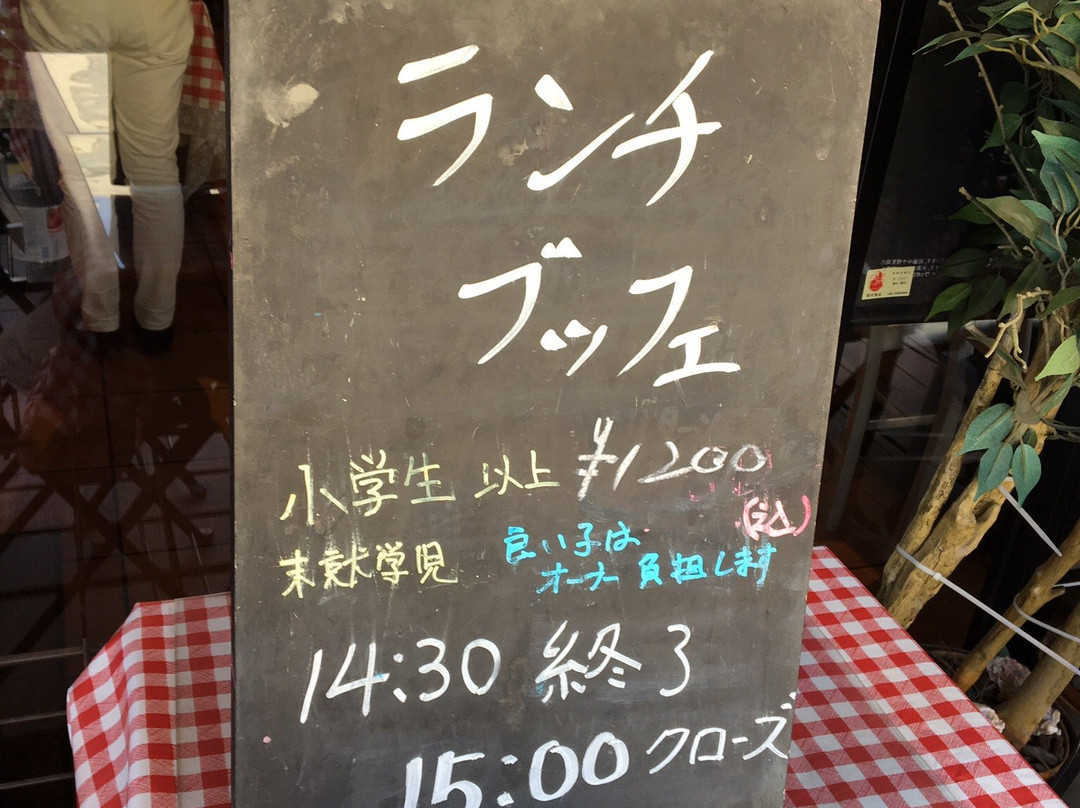 ランチ
ブッフェ
小学生 以上 ¥1200
(込)
未就学児 良い子は
オーナー負担します
14:30 終了
15:00 クローズ